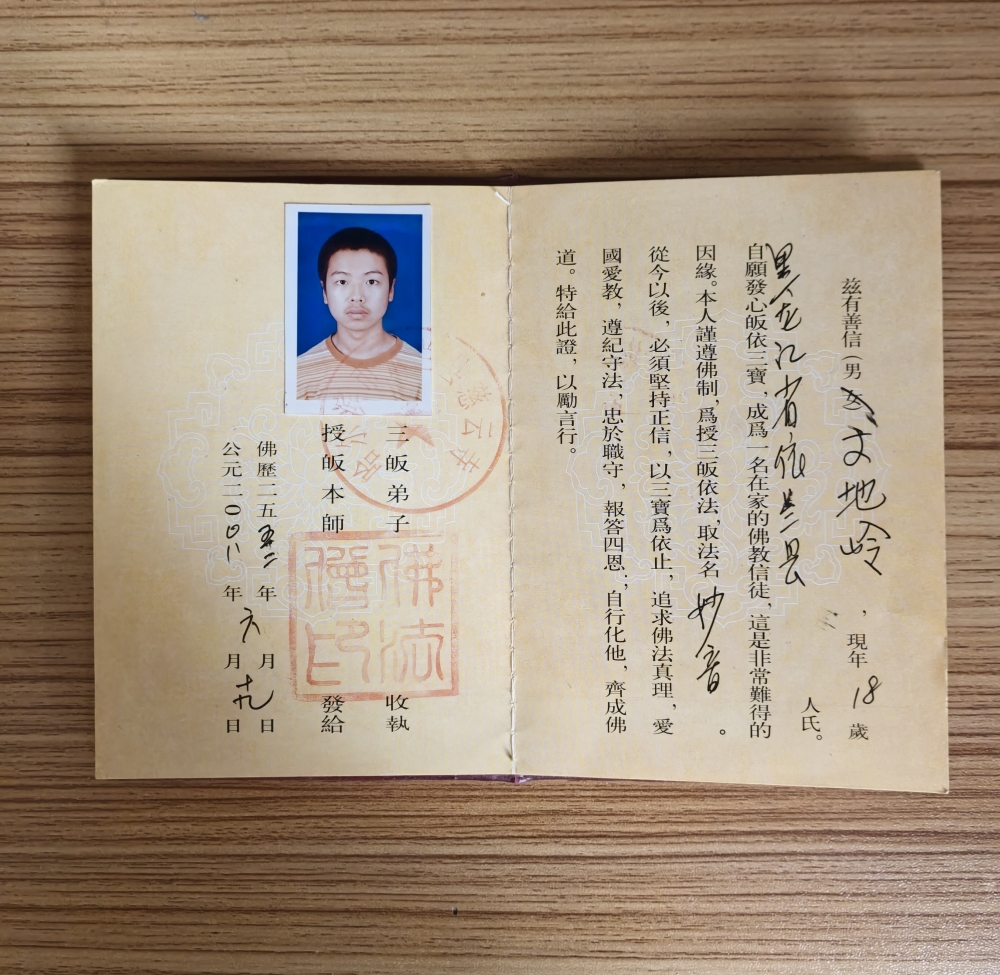 兹有善信（男 文地岭，現年18歲
黑龙江省依兰县人氏。
自願發心皈依三寶，成爲一名在家的佛教信徒，這是非常難得的
因緣。本人謹遵佛制，爲授三皈依法，取法名妙音。
從今以後，必須堅持正信，以三寶爲依止，追求佛法真理，愛
國愛教，遵紀守法，忠於職守，報答四恩，自行化他，齊成佛
道。特給此證，以勵言行。
三皈弟子 收執
授皈本師 發給
佛歷二五五二年 月 日
公元二〇〇八年六月十九日
佛法
僧印